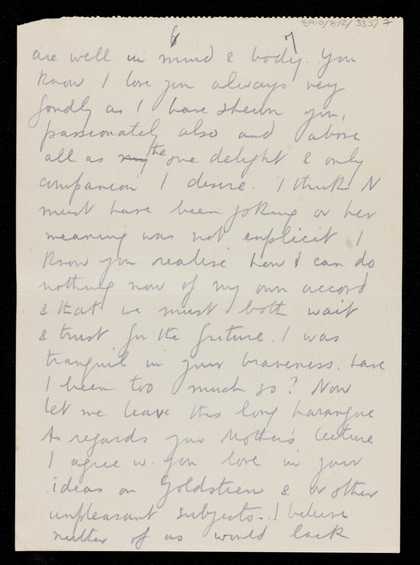 6 7
are well in mind & body. You
know I love you always very
fondly as I have shewn you,
passionately also and above
all as my the one delight & only
companion I desire. I think N
must have been joking or her
meaning was not explicit. I
know you realise how I can do
nothing now of my own accord
& that we must both wait
& trust for the future. I was
tranquil in your braveness. have
I been too much so? Now
let me leave this long harangue
As regards your Mother's lecture
I agree w. you love in your
ideas on Goldstein & or other
unpleasant subjects. I believe
neither of us would lack